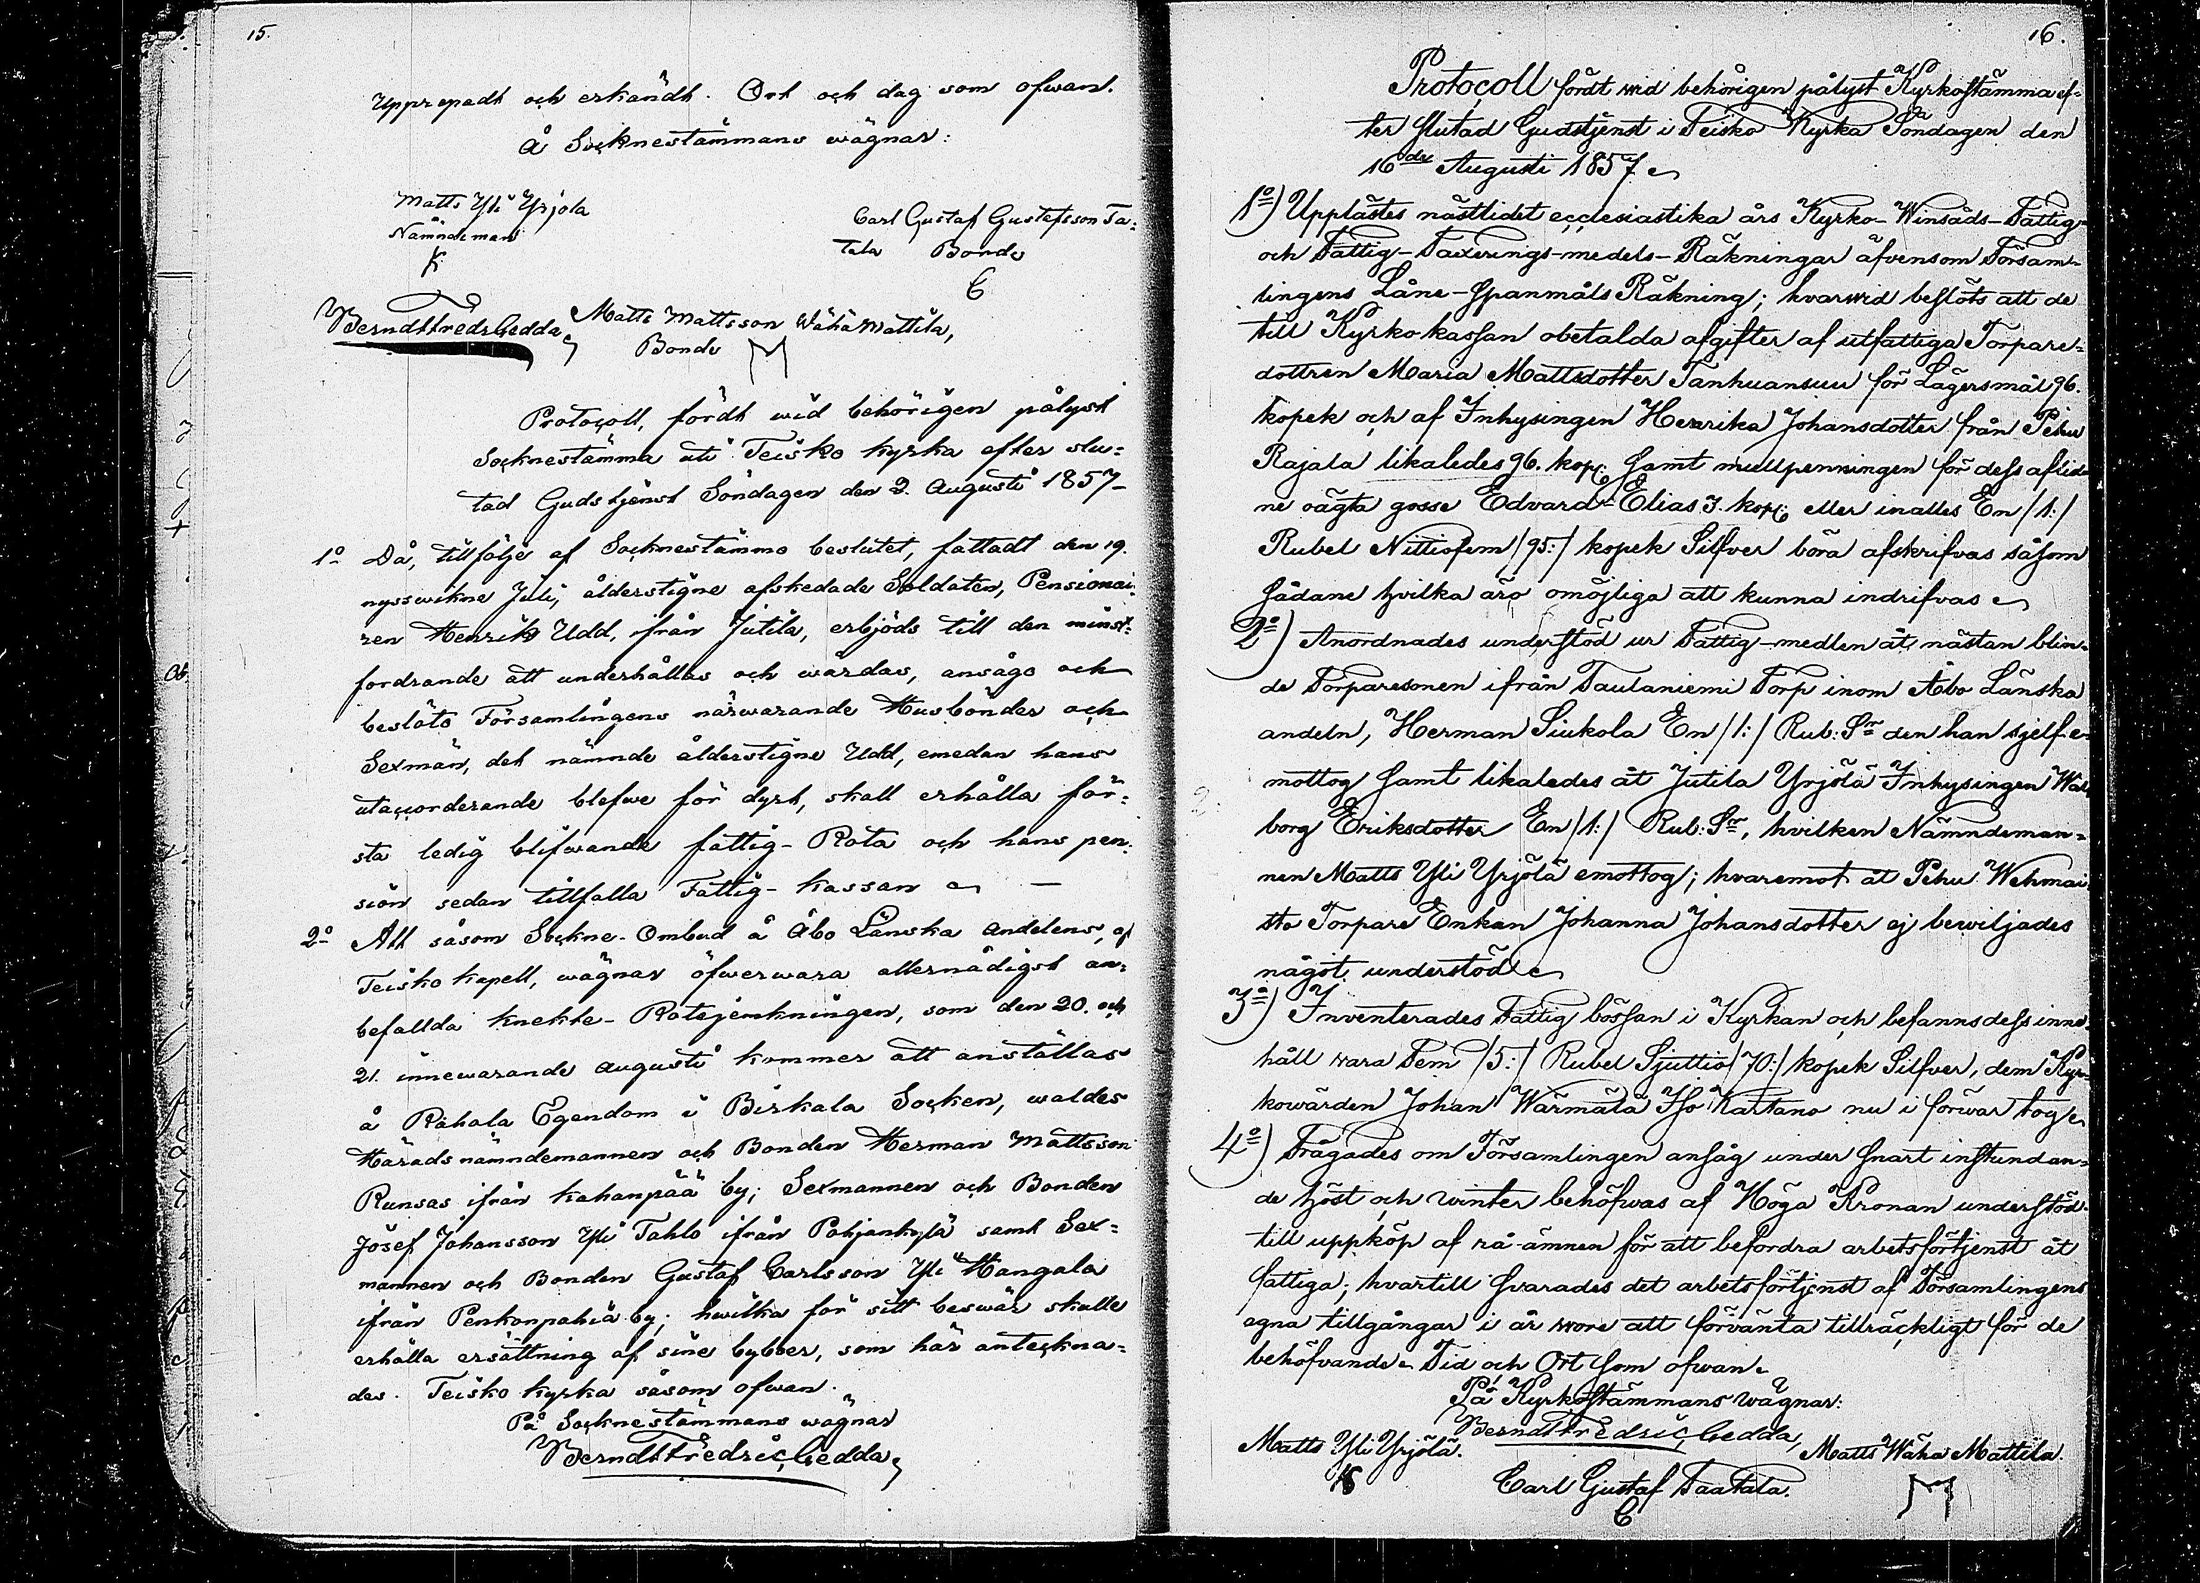 15.
Upprepadt och erkändt. Ort och dag som ofwan.
Å Socknestämmans wägnar:
Matts Yli Yrjola
Nämndeman
K
Carl Gustaf Gustafsson Ta=
tala Bonde
C
Berndt Fredr Gedda,
Matts Mattsson Wähä Mattila,
Bonde M
Protocoll, fördt wid behörigen pålyst
Socknestämma uti Teisko kyrka efter slu=
tad Gudstjenst Söndagen den 2. Augusti 1857
1o Då, tillfölje af Socknestämmo beslutet, fattadt den 19.
nysswikne Juli, ålderstigne afskedade Soldaten, Pensionai=
ren Henrik Udd, ifrån Jutila, erbjöds till den minst=
fordrande att underhållas och wårdas, ansågo och
beslöto Församlingens närwarande Husbönder och
Sexmän, det nämnde ålderstigne Udd, emedan hans
utaccorderande blefwe för dyrt, skall erhålla för=
sta ledig blifwande fattig-Rota och hans pen=
sion sedan tillfalla Fattig-kassan
2o Att såsom Sockne-Ombud å Åbo Länska andelens, af
Teisko kapell, wägnar öfwerwara allernådigst an=
befallda knekte-Rotejemkningen, som den 20. och
21. innewarande augusti kommer att anställas
å Rahala Egendom i Birkala Socken, waldes
Häradsnämndemannen och Bonden Herman Mattsson
Runsas ifrån kahanpää by; Sexmannen och Bonden
Josef Johansson Yli Tahlo ifrån Pohjankylä samt Sex=
mannen och Bonden Gustaf Carlsson Yli Hangala
ifrån Penkonpahia by; hwilka för sitt beswär skulle
erhålla ersättning af sine byboer, som här anteckna=
des. Teisko kyrka såsom ofwan.
På Socknestämmans wägnar
Berndt Fredric Gedda,
16.
Protocoll fördt wid behörigen pålyst Kyrkostämma ef=
ter slutad Gudstjenst i Teisko Kyrka Söndagen den
16de Augusti 1857
1o) Upplästes nästlidet ecclesiastika års Kyrko-Winsäds-Fattig-
och Fattig-Taxerings-medels-Räkningar äfvensom Försam=
lingens Låne-Spanmåls Räkning; hvarwid beslöts att de
till Kyrkokassan obetalda afgifter af utfattiga Torpare=
dottren Maria Mattsdotter Tanhuansuu för Lägersmål 96.
kopek och af Inhysingen Henrika Johansdotter från Pihu
Rajala likaledes 96. kop: samt mullpenningen för dess aflid=
ne oägta gosse Edvard Elias 3. kop: eller inalles En /1:/
Rubel Nittiofem /95:/ kopek Silfver böra afskrifvas såsom
sådane hvilka äro omöjliga att kunna indrifvas
2o) Anordnades understöd ur Fattig-medlen åt nästan blin=
de Torparesonen ifrån Taulaniemi Torp inom Åbo Länska
andeln, Herman Siukola En /1:/ Rub: Sr den han sjelf e=
mottog samt likaledes åt Jutila Yrjölä Inhysingen Wal=
borg Eriksdotter En /1:/ Rub: Sr, hvilken Nämndeman=
nen Matts Yli Yrjölä emottog; hvaremot åt Pihu Wehmai=
sto Torpare Enkan Johanna Johansdotter ej bewiljades
något understöd
3o) Inventerades Fattig bössan i Kyrkan och befanns dess inne=
håll wara Fem /5:/ Rubel Sjuttio /70:/ kopek Silfver, dem Kyr=
kowärden Johan Wärmälä Iso Kartano nu i förwar tog
4o) Frågades om Församlingen ansåg under snart instundan=
de höst och winter behöfwas af Höga Kronan understöd
till uppköp af rå-ämnen för att befordra arbetsförtjenst åt
fattiga; hvartill svarades det arbetsförtjenst af Församlingens
egna tillgångar i år wore att förvänta tillräckligt för de
behöfvande. Tid och Ort som ofwan.
På Kyrkostämmans wägnar:
Berndt Fredric Gedda,
Matts Yli Yrjölä.
K
Matts Wähä Mattila.
M
Carl Gustaf Taatala.
C